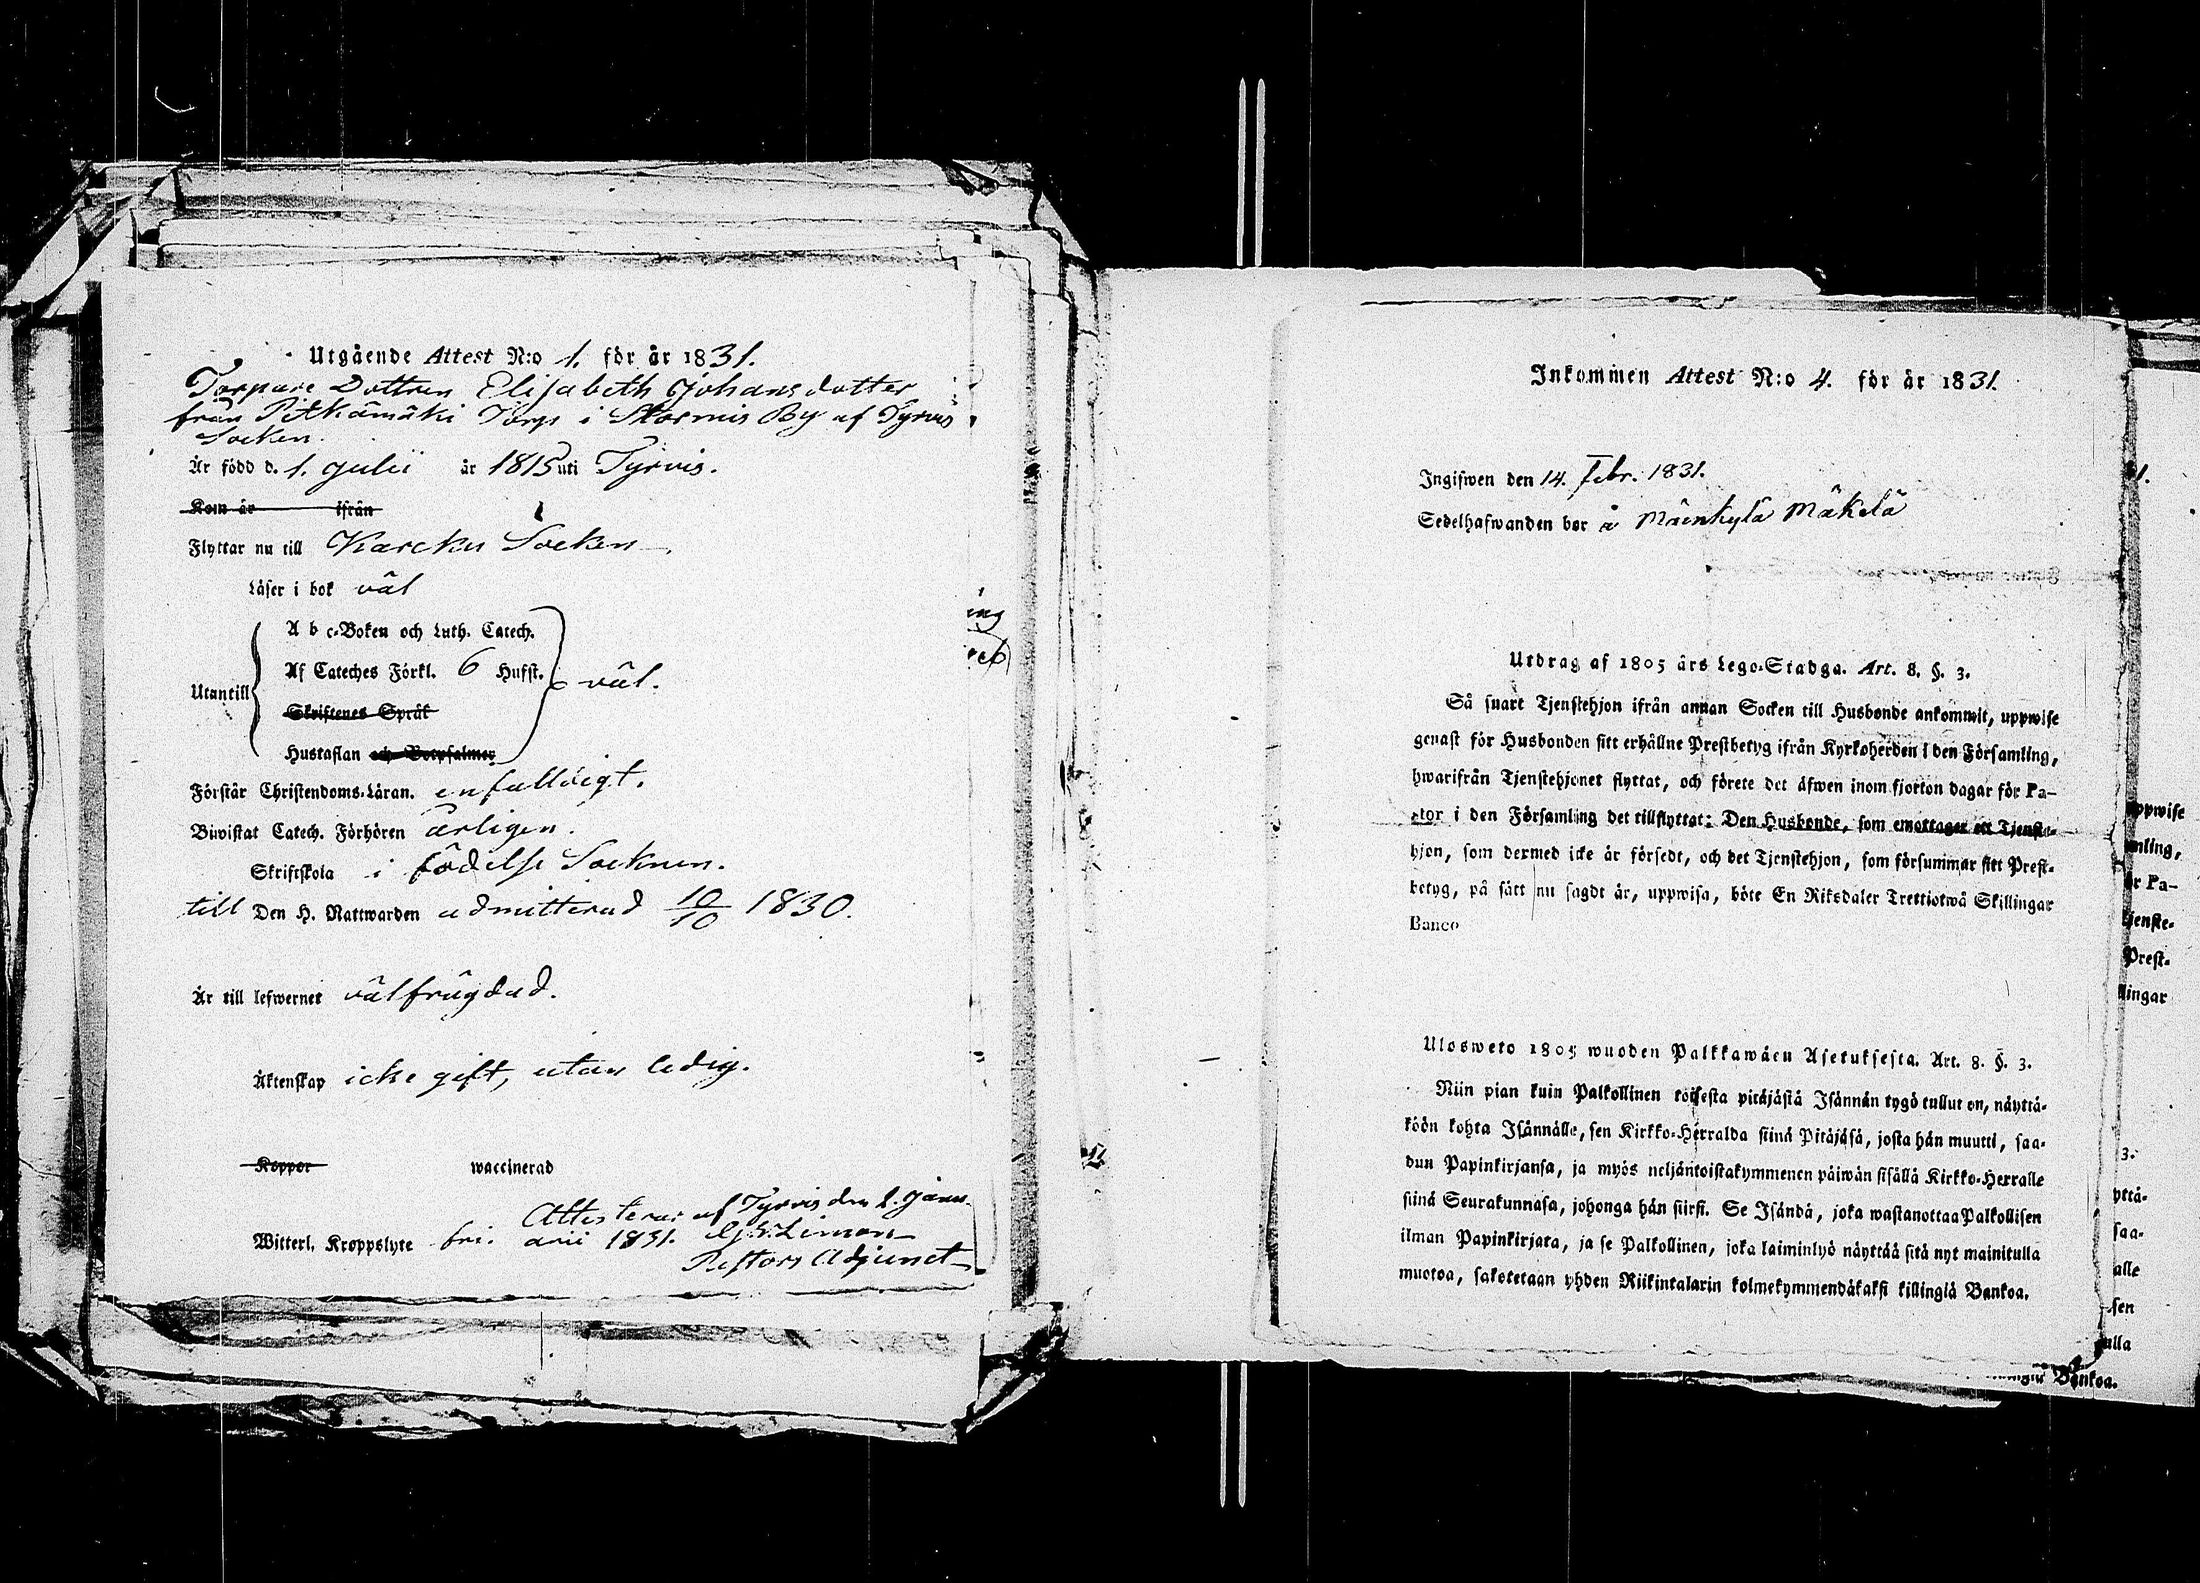 Utgående Attest N:o 1. för år 1831.
Torpare Dottren Elisabeth Johansdotter
från Pitkämäki Torp i Stormis By af Tyrvis
Socken.
Är född d. 1. Julii år 1815 uti Tyrvis.
Kom år ifrån
Flyttar nu till Karcku Socken
Läser i bok väl
A b c-Boken och Luth. Catech.
Af Cateches Förkl. 6 Hufst.
Utantill väl.
Skriftenes Språk
Hustaflan och Botpsalmer
Förstår Christendoms-Läran. enfalldigt.
Biwistat Catech. Förhören årligen.
Skriftskola i födelse Socknen.
till Den H. Nattwarden admitterad 10/10 1830.
Är till lefwernet välfrägdad.
Äktenskap icke gift, utan ledig.
Koppor waccinerad
Attesterar af Tyrvis den 1. Janu-
Witterl. Kroppslyte fri. arii 1831.
Pastors Adjunct
ing
Inkommen Attest N:o 4. för år 1831.
Ingifwen den 14. Febr. 1831.
Sedelhafwanden bor å Mäenkylä Mäkelä
Utdrag af 1805 års Lego-Stadga. Art. 8. §. 3.
Så snart Tjenstehjon ifrån annan Socken till Husbonde ankommit, uppwise
genast för Husbonden sitt erhållne Prestbetyg ifrån Kyrkoherden i den Församling,
hwarifrån Tjenstehjonet flyttat, och förete det äfwen inom fjorton dagar för Pa-
stor i den Församling det tillflyttat: Den Husbonde, som emottager ett Tjenste-
hjon, som dermed icke är försedt, och det Tjenstehjon, som försummar sitt Prest-
betyg, på sätt nu sagdt är, uppwisa, böte En Riksdaler Trettiotwå Skillingar
Banco
Ulosweto 1805 wuoden Palkkawäen Asetuksesta. Art. 8. §. 3.
Niin pian kuin Palkollinen toisesta pitäjästä Isännän tygö tullut on, näyttä-
köön kohta Isännälle, sen Kirkko-Herralda siinä Pitäjäsä, josta hän muutti, saa-
dun Papinkirjansa, ja myös neljäntoistakymmenen päiwän sisällä Kirkko-Herralle
siinä Seurakunnasa, johonga hän siirsi. Se Isändä, joka wastanottaa Palkollisen
ilman Papinkirjata, ja se Palkollinen, joka laiminlyö näyttää sitä nyt mainitulla
muotoa, sakotetaan yhden Riikintalarin kolmekymmendäkaksi killingiä Bankoa.
1.
uppwise
mling,
ör Pa-
Tjenste-
Prest-
llingar
3.
yttä-
saa-
alle
sen
ulla
Bankoa.